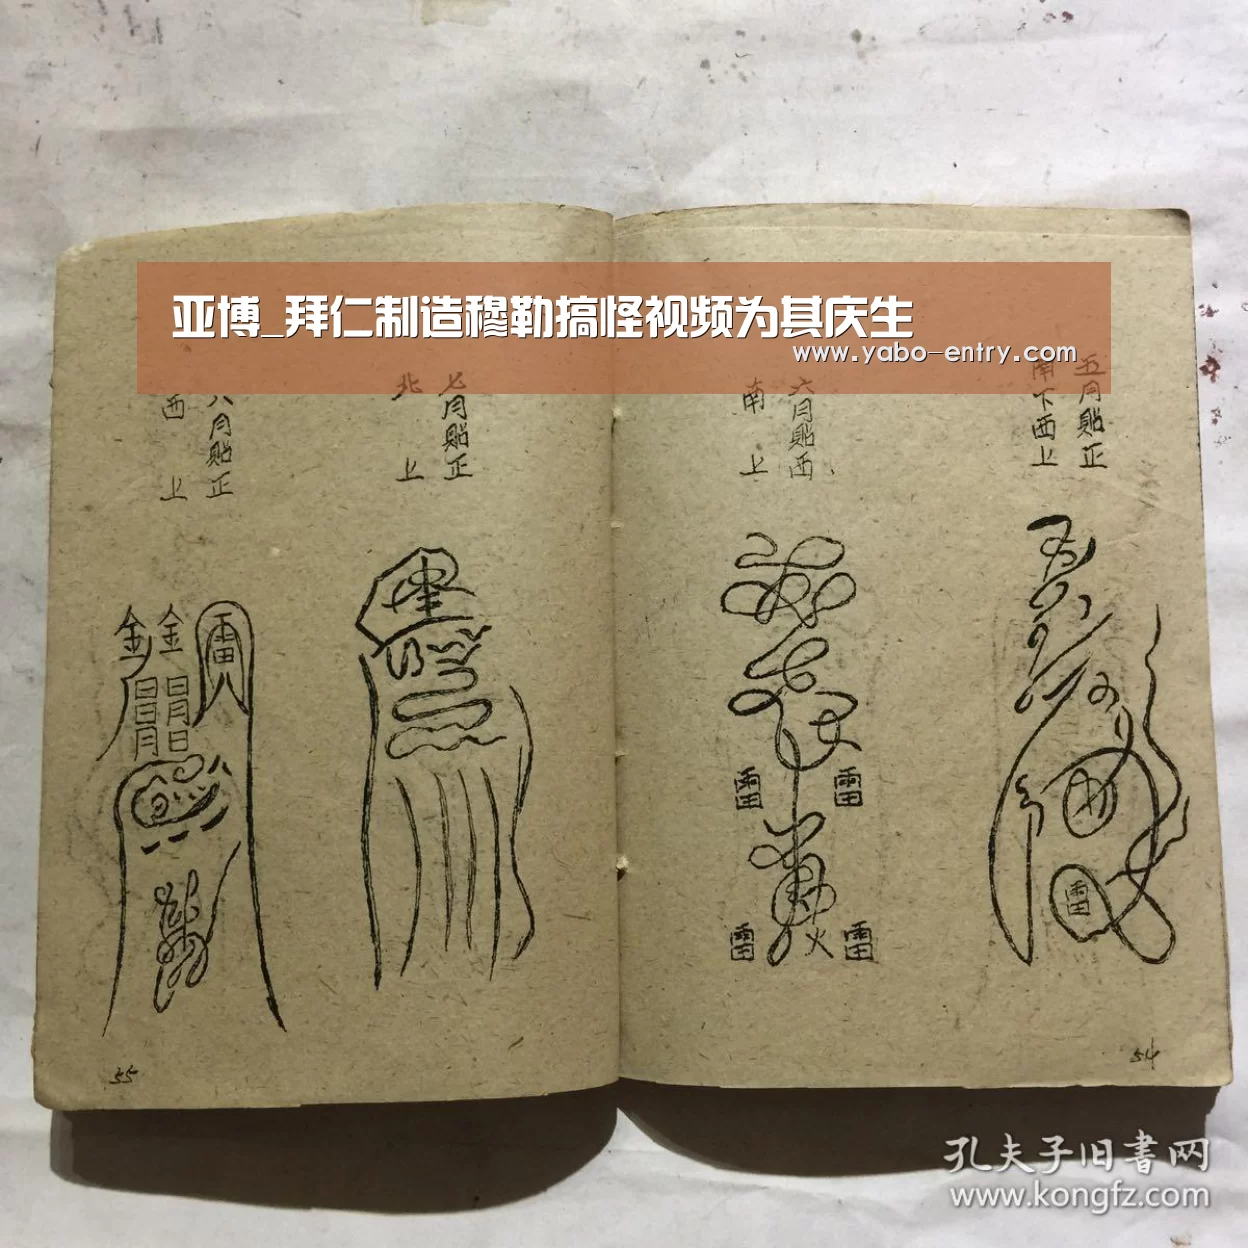 亚博_拜仁制造穆勒搞怪视频为其庆生
www.yabo-entry.com
五月贴正
南下西上
六月贴西
南上
七月贴正
北上
八月贴正
西上
雷
雷
雷
雷
火
雷
雷
金
金
日月日
日日月
55
54
孔夫子旧書网
www.kongfz.com